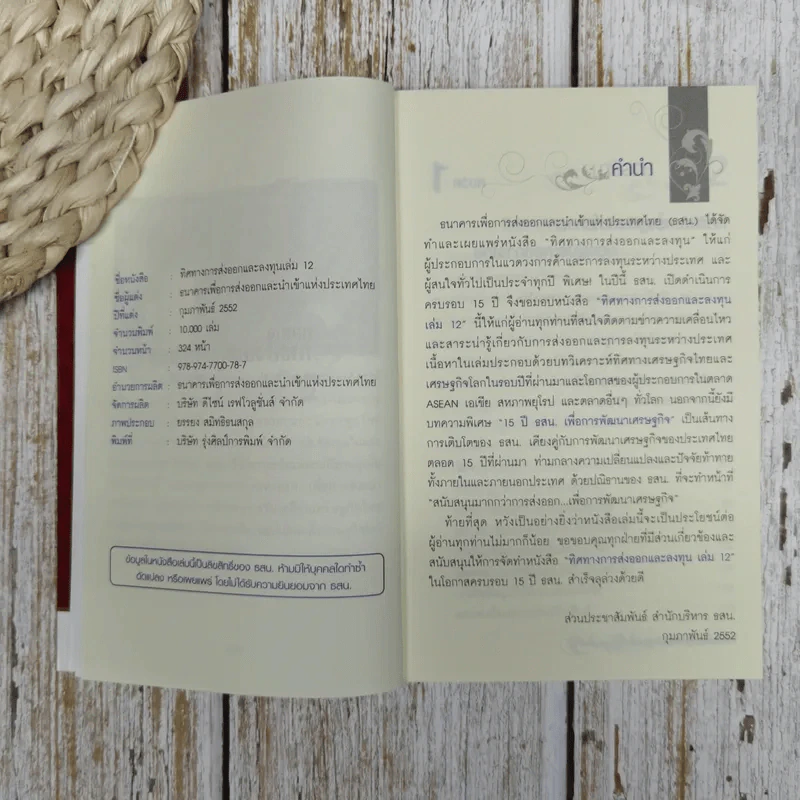 ชื่อหนังสือ : ทิศทางการส่งออกและลงทุนเล่ม 12
ชื่อผู้แต่ง : ธนาคารเพื่อการส่งออกและนำเข้าแห่งประเทศไทย
ปีที่แต่ง : กุมภาพันธ์ 2552
จำนวนพิมพ์ : 10,000 เล่ม
จำนวนหน้า : 324 หน้า
ISBN : 978-974-7700-78-7
อำนวยการผลิต : ธนาคารเพื่อการส่งออกและนำเข้าแห่งประเทศไทย
จัดการผลิต : บริษัท ดีไซน์ เรฟโวลูชั่นส์ จำกัด
ภาพประกอบ : ยรรยง สมิทธิธนสกุล
พิมพ์ที่ : บริษัท รุ่งศิลป์การพิมพ์ จำกัด
ข้อมูลในหนังสือเล่มนี้เป็นลิขสิทธิ์ของ ธสน. ห้ามมิให้บุคคลใดทำซ้ำ
ดัดแปลง หรือเผยแพร่ โดยไม่ได้รับความยินยอมจาก ธสน.
คำนำ
ธนาคารเพื่อการส่งออกและนำเข้าแห่งประเทศไทย (ธสน.) ได้จัด
ทำและเผยแพร่หนังสือ "ทิศทางการส่งออกและลงทุน" ให้แก่
ผู้ประกอบการในแวดวงการค้าและการลงทุนระหว่างประเทศ และ
ผู้สนใจทั่วไปเป็นประจำทุกปี พิเศษ! ในปีนี้ ธสน. เปิดดำเนินการ
ครบรอบ 15 ปี จึงขอมอบหนังสือ "ทิศทางการส่งออกและลงทุน
เล่ม 12" นี้ให้แก่ผู้อ่านทุกท่านที่สนใจติดตามข่าวความเคลื่อนไหว
และสาระน่ารู้เกี่ยวกับการส่งออกและการลงทุนระหว่างประเทศ
เนื้อหาในเล่มประกอบด้วยบทวิเคราะห์ทิศทางเศรษฐกิจไทยและ
เศรษฐกิจโลกในรอบปีที่ผ่านมาและโอกาสของผู้ประกอบการในตลาด
ASEAN เอเชีย สหภาพยุโรป และตลาดอื่นๆ ทั่วโลก นอกจากนี้ยังมี
บทความพิเศษ "15 ปี ธสน. เพื่อการพัฒนาเศรษฐกิจ" เป็นเส้นทาง
การเติบโตของ ธสน. เคียงคู่กับการพัฒนาเศรษฐกิจของประเทศไทย
ตลอด 15 ปีที่ผ่านมา ท่ามกลางความเปลี่ยนแปลงและปัจจัยท้าทาย
ทั้งภายในและภายนอกประเทศ ด้วยปณิธานของ ธสน. ที่จะทำหน้าที่
"สนับสนุนมากกว่าการส่งออก...เพื่อการพัฒนาเศรษฐกิจ"
ท้ายที่สุด หวังเป็นอย่างยิ่งว่าหนังสือเล่มนี้จะเป็นประโยชน์ต่อ
ผู้อ่านทุกท่านไม่มากก็น้อย ขอขอบคุณทุกฝ่ายที่มีส่วนเกี่ยวข้องและ
สนับสนุนให้การจัดทำหนังสือ "ทิศทางการส่งออกและลงทุน เล่ม 12"
ในโอกาสครบรอบ 15 ปี ธสน. สำเร็จลุล่วงด้วยดี
ส่วนประชาสัมพันธ์ สำนักบริหาร ธสน.
กุมภาพันธ์ 2552